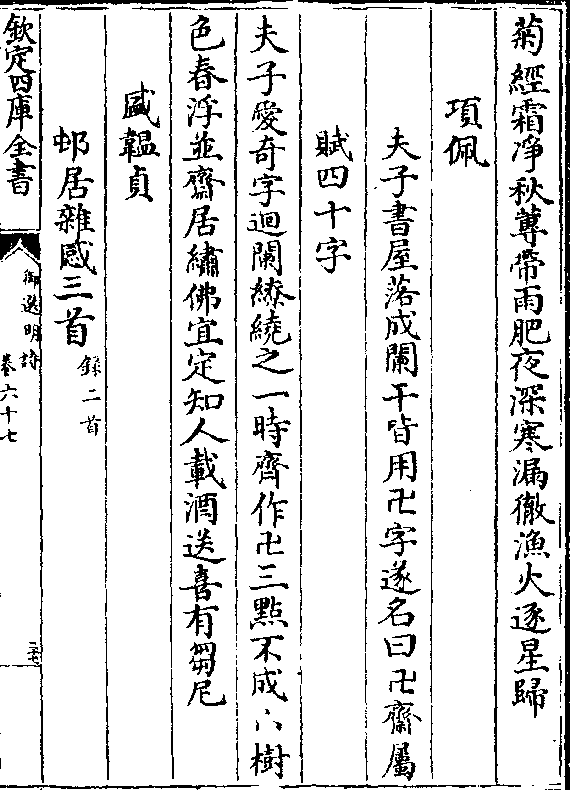 菊經霜淨秋蓴帶雨肥夜深寒漏徹漁火逐星歸
項佩
夫子書屋落成闌干皆用卍字遂名曰卍齋屬
賦四十字
夫子愛奇字迴闌繚繞之一時齊作卍三點不成㆑樹
色春浮並齋居繡佛宜定知人載酒送喜有芻尼
盛韞貞
邨居雜感三首錄二首
欽定四庫全書
御選明詩
卷六十七